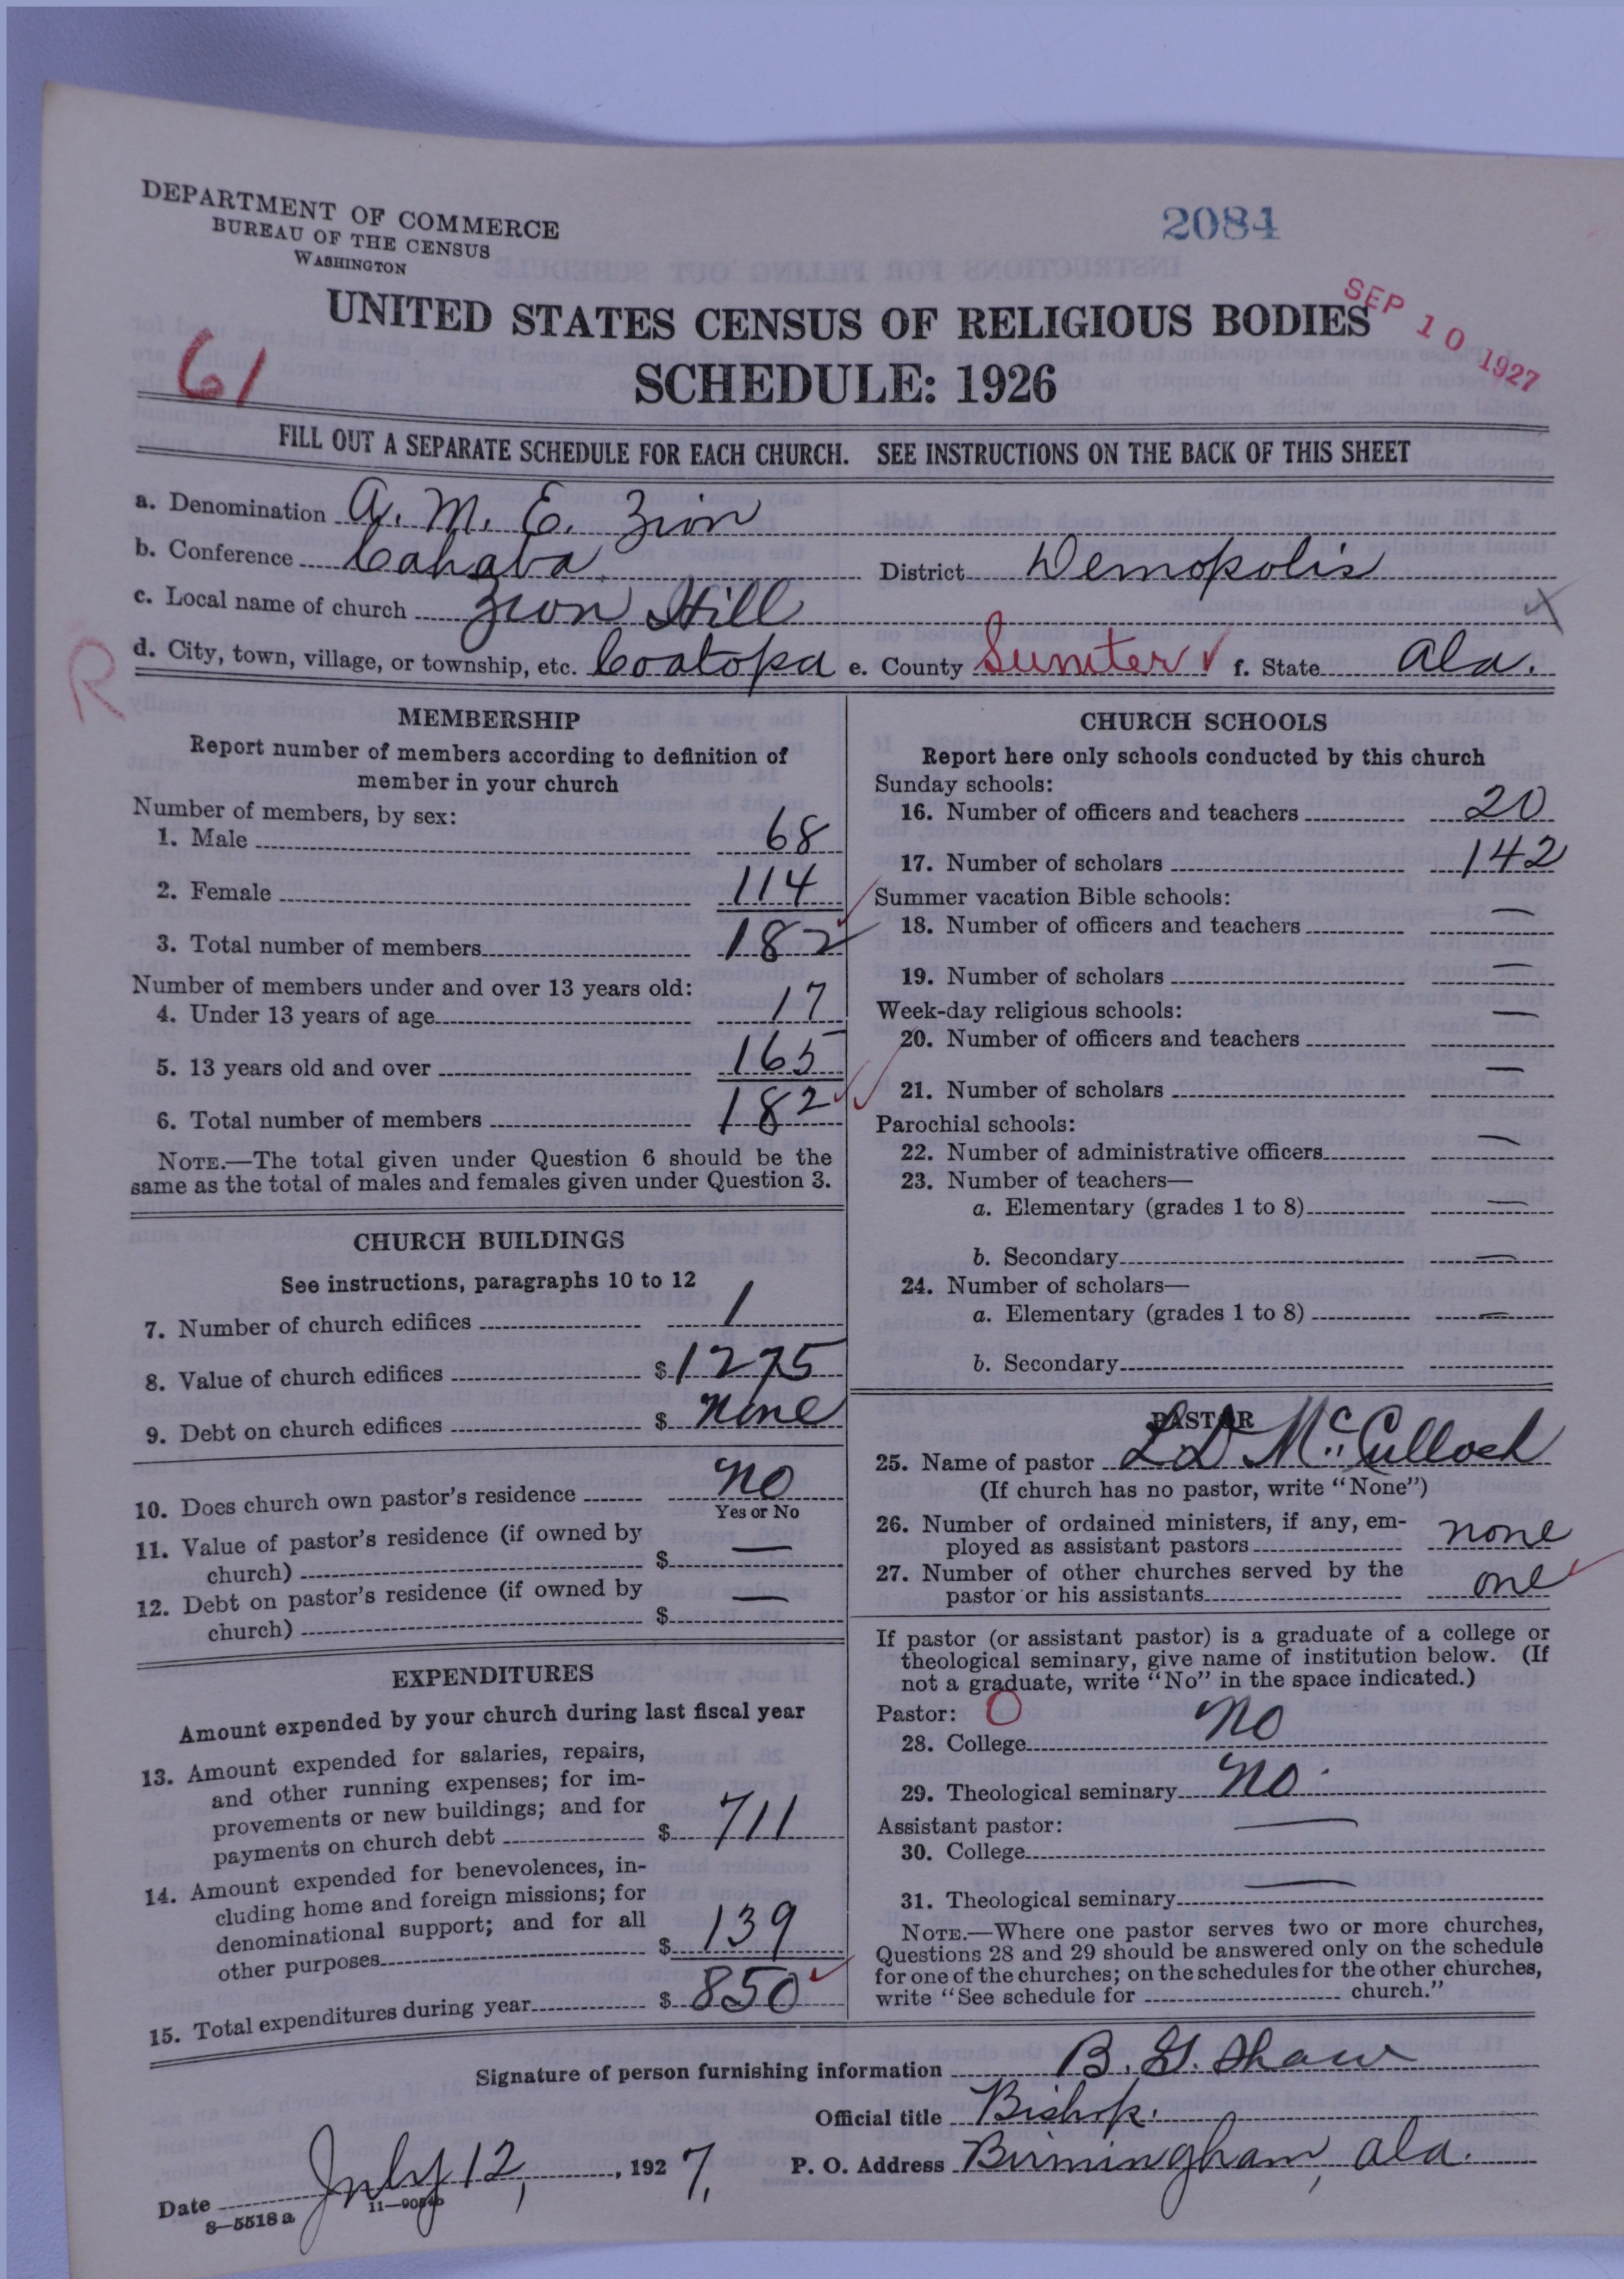 DEPARTMENT OF COMMERCE
BUREAU OF THE CENSUS
WASHINGTON
2084
SEP 10 1927
UNITED STATES CENSUS OF RELIGIOUS BODIES
SCHEDULE: 1926
61
FILL OUT A SEPARATE SCHEDULE FOR EACH CHURCH. SEE INSTRUCTIONS ON THE BACK OF THIS SHEET
a. Denomination A. M. E. Zion
b. Conference Cahaba District Demopolis
c. Local name of church Zion Hill
d. City, town, village, or township, etc. Coatopa e. County Sumter f. State Ala.
R
MEMBERSHIP
Report number of members according to definition of
member in your church
Number of members, by sex:
1. Male 68
2. Female 114
3. Total number of members 182
Number of members under and over 13 years old:
4. Under 13 years of age 17
5. 13 years old and over 165
6. Total number of members 182
NOTE.—The total given under Question 6 should be the
same as the total of males and females given under Question 3.
CHURCH BUILDINGS
See instructions, paragraphs 10 to 12
7. Number of church edifices 1
8. Value of church edifices $ 1275
9. Debt on church edifices $ none
10. Does church own pastor's residence no
Yes or No
11. Value of pastor's residence (if owned by
church) $ —
12. Debt on pastor's residence (if owned by
church) $ —
EXPENDITURES
Amount expended by your church during last fiscal year
13. Amount expended for salaries, repairs,
and other running expenses; for im-
provements or new buildings; and for
payments on church debt $ 711
14. Amount expended for benevolences, in-
cluding home and foreign missions; for
denominational support; and for all
other purposes $ 139
15. Total expenditures during year $ 850
CHURCH SCHOOLS
Report here only schools conducted by this church
Sunday schools:
16. Number of officers and teachers 20
17. Number of scholars 142
Summer vacation Bible schools:
18. Number of officers and teachers —
19. Number of scholars —
Week-day religious schools:
20. Number of officers and teachers —
21. Number of scholars —
Parochial schools:
22. Number of administrative officers —
23. Number of teachers—
a. Elementary (grades 1 to 8) —
b. Secondary —
24. Number of scholars—
a. Elementary (grades 1 to 8) —
b. Secondary
PASTOR
25. Name of pastor L D McCulloch
(If church has no pastor, write "None")
26. Number of ordained ministers, if any, em-
ployed as assistant pastors none
27. Number of other churches served by the
pastor or his assistants one
If pastor (or assistant pastor) is a graduate of a college or
theological seminary, give name of institution below. (If
not a graduate, write "No" in the space indicated.)
Pastor: O
28. College no
29. Theological seminary no
Assistant pastor:
30. College —
31. Theological seminary —
NOTE.—Where one pastor serves two or more churches,
Questions 28 and 29 should be answered only on the schedule
for one of the churches; on the schedules for the other churches,
write "See schedule for church."
Signature of person furnishing information B. G. Shaw
Official title Bishop.
Date July 12, 1927, P. O. Address Birmingham, Ala.
8—5518a